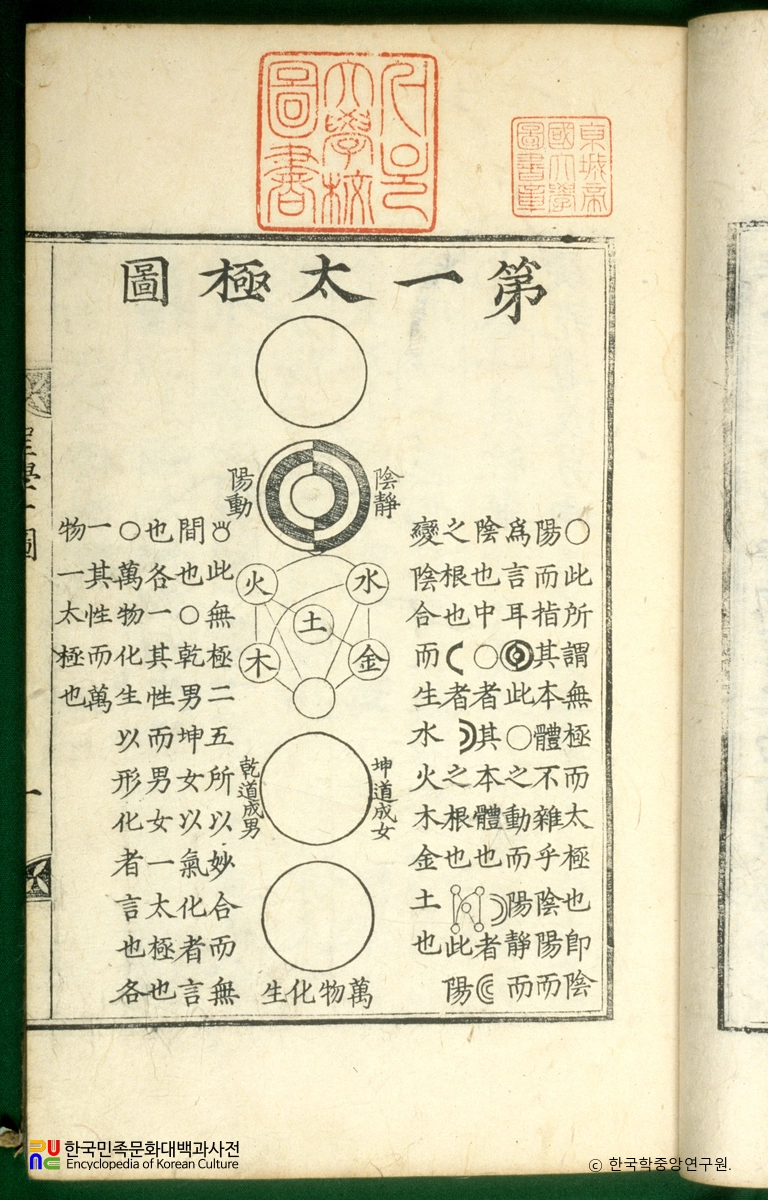 서울
大學校
圖書
京城帝
國大學
圖書章
第一太極圖
陰靜
陽動
水
火
土
金
木
坤道成女
乾道成男
萬物化生
○此所謂無極而太極也卽陰
陽而指其本體不雜乎陰陽而
爲言耳◎此○之動而陽靜而
陰也中○者其本體也☽者
之根也☾者☽之根也此陽
變陰合而生水火木金土也
此無極二五所以妙合而無
間也○乾男坤女以氣化者言
也各一其性而男女一太極也
○萬物化生以形化者言也各
一其性而萬
物一太極也
聖學十圖
一
한국민족문화대백과사전
Encyclopedia of Korean Culture
© 한국학중앙연구원.